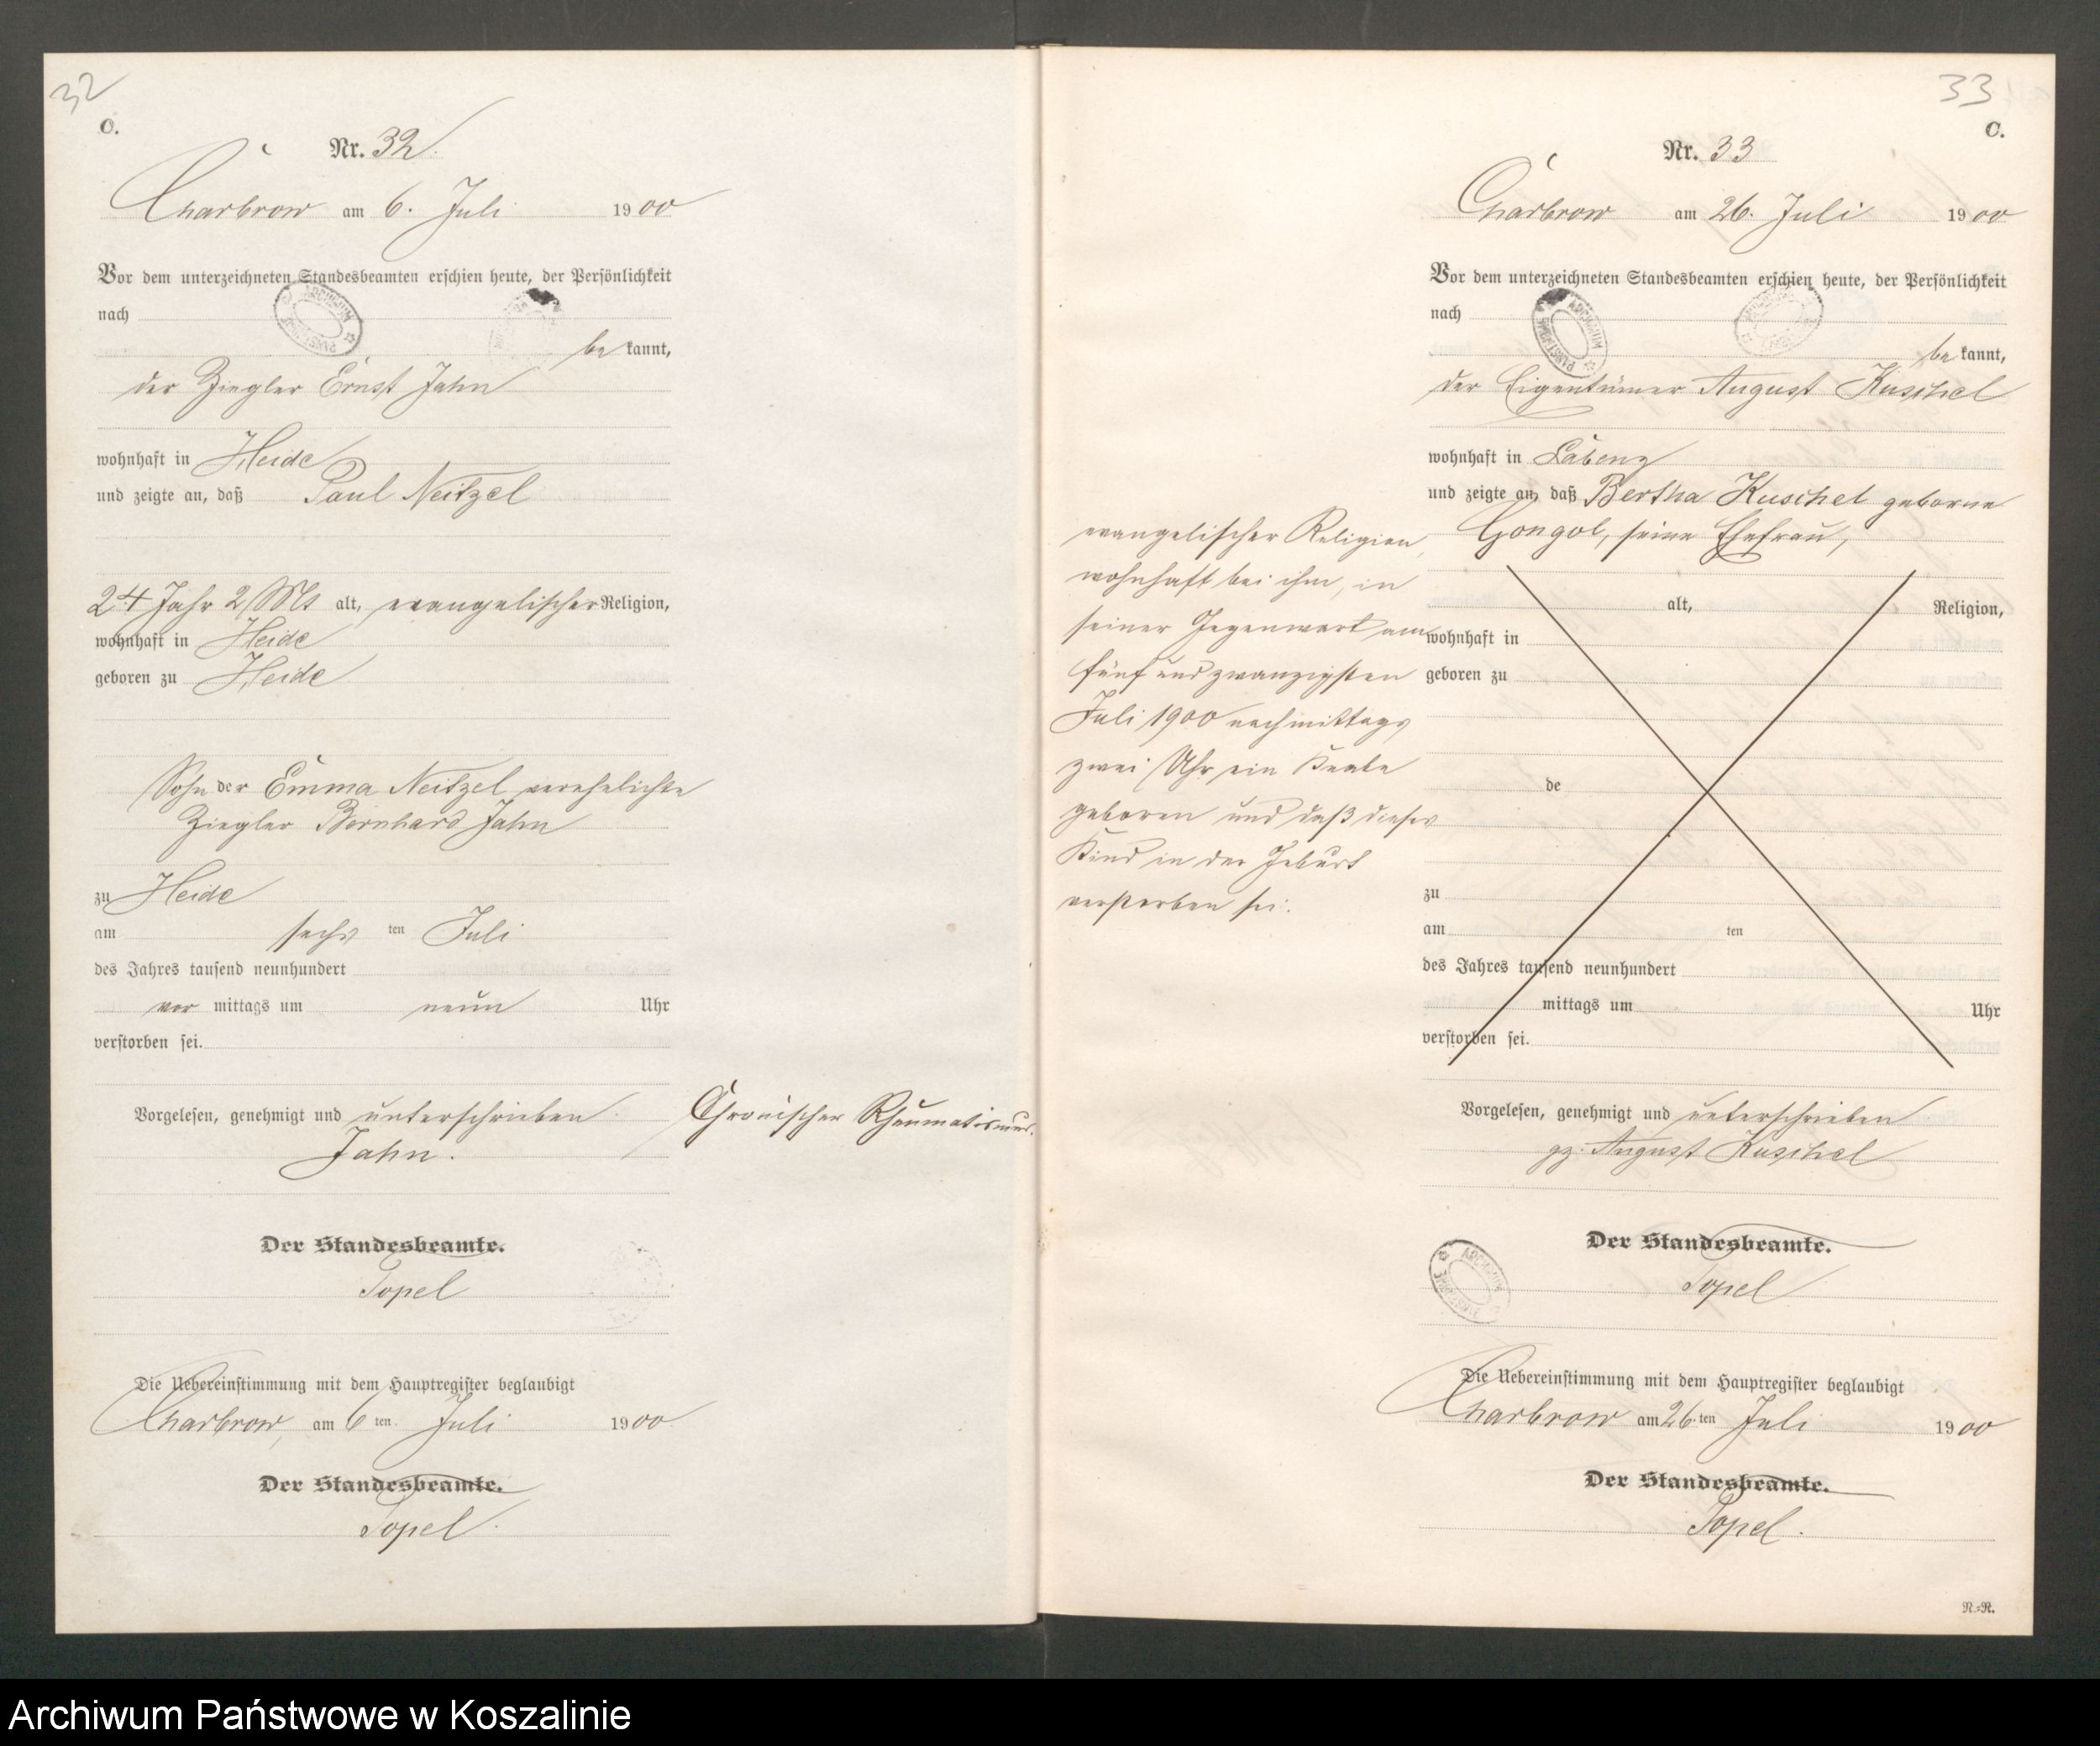 32
C.
Nr. 32
Charbrow am 6. Juli 1900
Vor dem unterzeichneten Standesbeamten erschien heute, der Persönlichkeit
nach
be kannt,
der Ziegler Ernst Jahn
wohnhaft in Heide
und zeigte an, daß Paul Neitzel
24 Jahr 2 Mt alt, evangelischer Religion,
wohnhaft in Heide
geboren zu Heide
Sohn der Emma Neitzel verehelichte
Ziegler Bernhard Jahn
zu Heide
am sechs ten Juli
des Jahres tausend neunhundert
vor mittags um neun Uhr
verstorben sei.
Vorgelesen, genehmigt und unterschrieben
Jahn.
Chronischer Rheumatismus.
Der Standesbeamte.
Topel
Die Uebereinstimmung mit dem Hauptregister beglaubigt
Charbrow, am 6 ten Juli 1900
Der Standesbeamte.
Topel.
33
C.
Nr. 33
Charbrow am 26. Juli 1900
Vor dem unterzeichneten Standesbeamten erschien heute, der Persönlichkeit
nach
be kannt,
der Eigentümer August Kuschel
wohnhaft in Labenz
und zeigte an, daß Bertha Kuschel geborne
Gongol, seine Ehefrau,
evangelischer Religion,
wohnhaft bei ihm, in
seiner Gegenwart am
fünf und zwanzigsten
Juli 1900 nachmittags
zwei Uhr ein Knabe
geboren und daß dieses
Kind in der Geburt
verstorben sei.
alt, Religion,
wohnhaft in
geboren zu
de
zu
am ten
des Jahres tausend neunhundert
mittags um Uhr
verstorben sei.
Vorgelesen, genehmigt und unterschrieben
gz. August Kuschel
Der Standesbeamte.
Topel
Die Uebereinstimmung mit dem Hauptregister beglaubigt
Charbrow am 26. ten Juli 1900
Der Standesbeamte.
Topel.
R.=R.
Archiwum Państwowe w Koszalinie